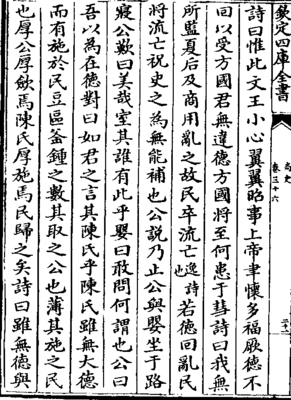 欽定四庫全書
尚史
卷三十六
詩曰惟此文王小心翼翼昭事上帝聿懷多福厥德不
回以受方國君無違德方國將至何患于彗詩曰我無
所監夏后及商用亂之故民卒流亡逸詩也若德回亂民
將流亡祝史之為無能補也公説乃止公與嬰坐于路
寢公歎曰美哉室其誰有此乎嬰曰敢問何謂也公曰
吾以為在德對曰如君之言其陳氏乎陳氏雖無大德
而有施於民豆區釜鍾之數其取之公也薄其施之民
也厚公厚斂焉陳氏厚施焉民歸之矣詩曰雖無德與